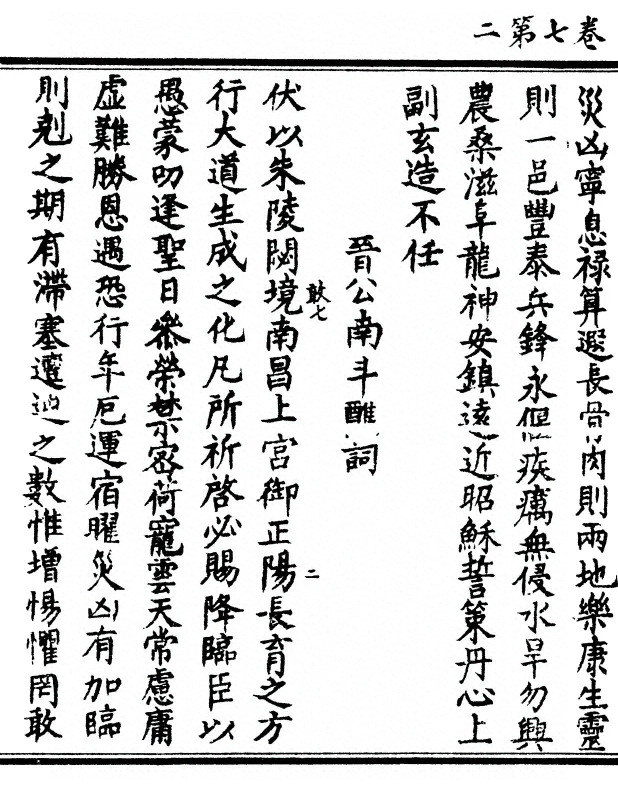 卷七第二
災凶寧息禄算遐長骨肉則兩地樂康生靈
則一邑豐泰兵鋒永偃疾癘無侵水旱勿興
農桑滋阜龍神安鎮遠近昭穌誓策丹心上
副玄造不任
晉公南斗醮詞
伏以朱陵閟境南昌上宮御正陽長育之方
敢七
二
行大道生成之化凡所祈啓必賜降臨臣以
愚蒙叨逢聖日叅榮禁密荷寵雲天常慮庸
虛難勝恩遇恐行年厄運宿曜災凶有加臨
則剋之期有滯塞邅迍之數惟增惕懼罔敢